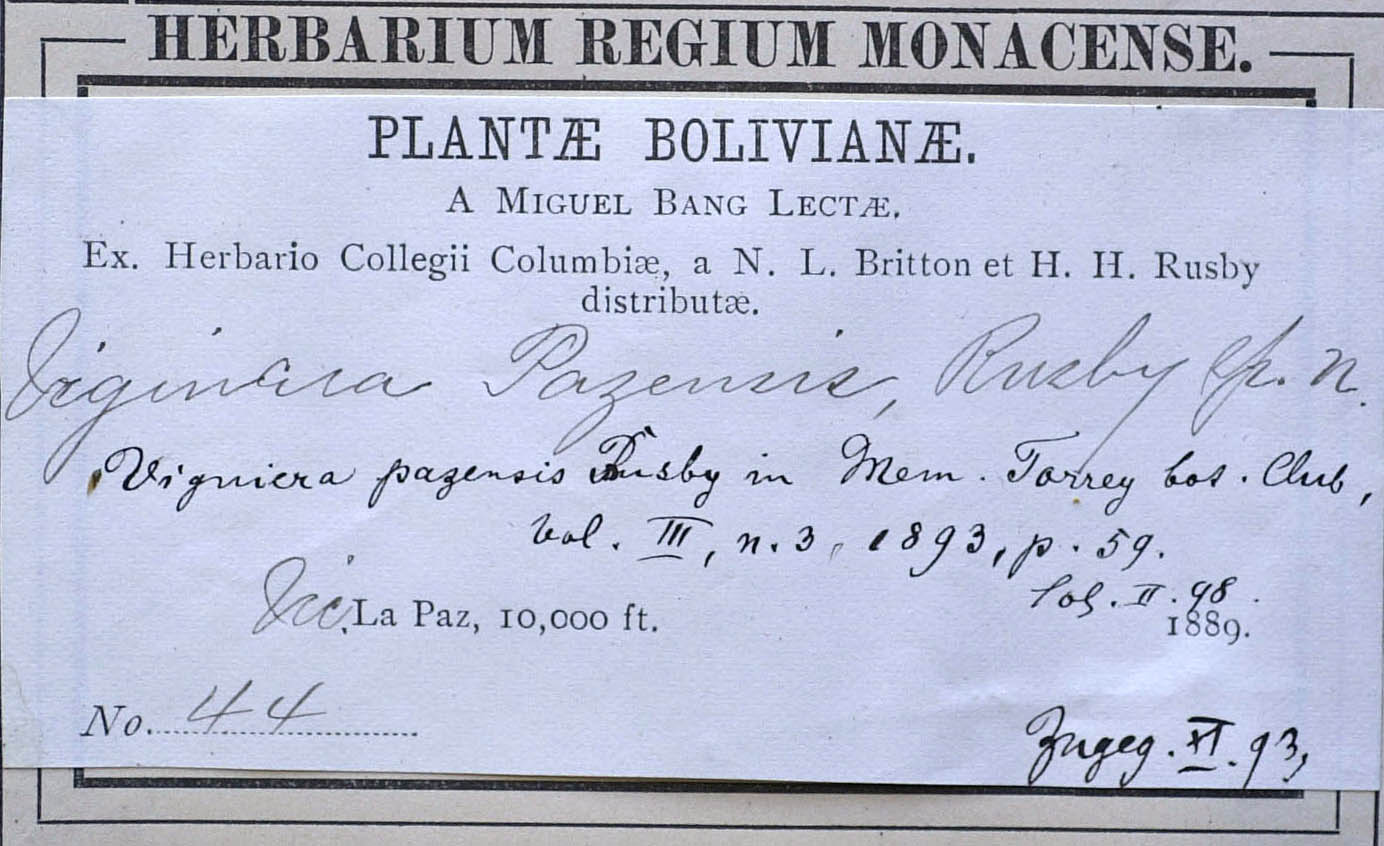 HERBARIUM REGIUM MONACENSE.
PLANTÆ BOLIVIANÆ.
A MIGUEL BANG LECTÆ.
Ex. Herbario Collegii Columbiæ, a N. L. Britton et H. H. Rusby
distributæ.
Viginiera Pazensis, Rusby sp. n.
Vigniera pazensis Rusby in Mem. Torrey bot. Club,
Vol. III, n. 3, 1893, p. 59.
Vic. La Paz, 10,000 ft.
II. 98.
1889.
No. 44
Zugeg. XI. 93,